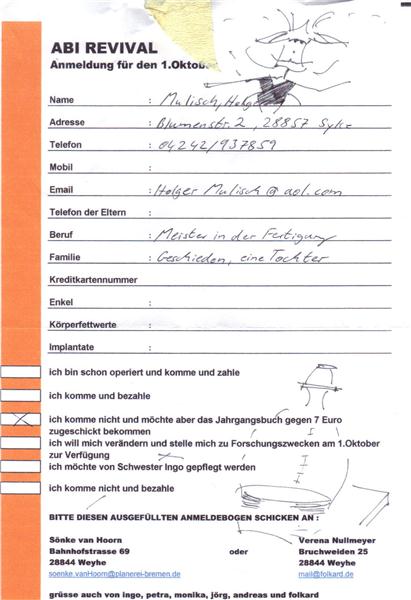 ABI REVIVAL
Anmeldung für den 1.Oktober
Name : Mulisch, Holger
Adresse : Blumenstr. 2, 28857 Syke
Telefon : 04242/937859
Mobil :
Email : Holger Mulisch@aol.com
Telefon der Eltern :
Beruf : Meister in der Fertigung
Familie : Geschieden, eine Tochter
Kreditkartennummer :
Enkel :
Körperfettwerte :
Implantate :
ich bin schon operiert und komme und zahle
ich komme und bezahle
ich komme nicht und möchte aber das Jahrgangsbuch gegen 7 Euro
zugeschickt bekommen
ich will mich verändern und stelle mich zu Forschungszwecken am 1.Oktober
zur Verfügung
ich möchte von Schwester Ingo gepflegt werden
ich komme nicht und bezahle
BITTE DIESEN AUSGEFÜLLTEN ANMELDEBOGEN SCHICKEN AN :
Sönke van Hoorn Verena Nullmeyer
Bahnhofstrasse 69 oder Bruchweiden 25
28844 Weyhe 28844 Weyhe
soenke.vanHoorn@planerei-bremen.de mail@folkard.de
grüsse auch von ingo, petra, monika, jörg, andreas und folkard